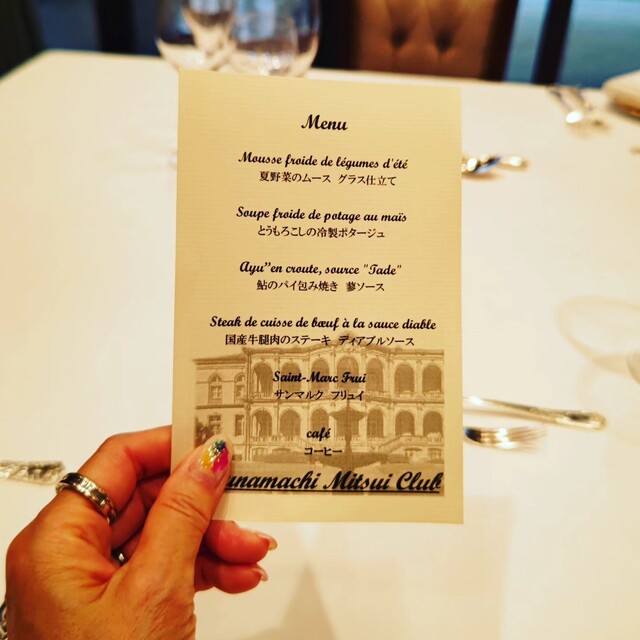 Menu
Mousse froide de légumes d'été
夏野菜のムース グラス仕立て
Soupe froide de potage au maïs
とうもろこしの冷製ポタージュ
Ayu"en croute, source "Tade"
鮎のパイ包み焼き 蓼ソース
Steak de cuisse de bœuf à la sauce diable
国産牛腿肉のステーキ ディアブルソース
Saint-Marc Frui
サンマルク フリュイ
café
コーヒー
unamachi Mitsui Club